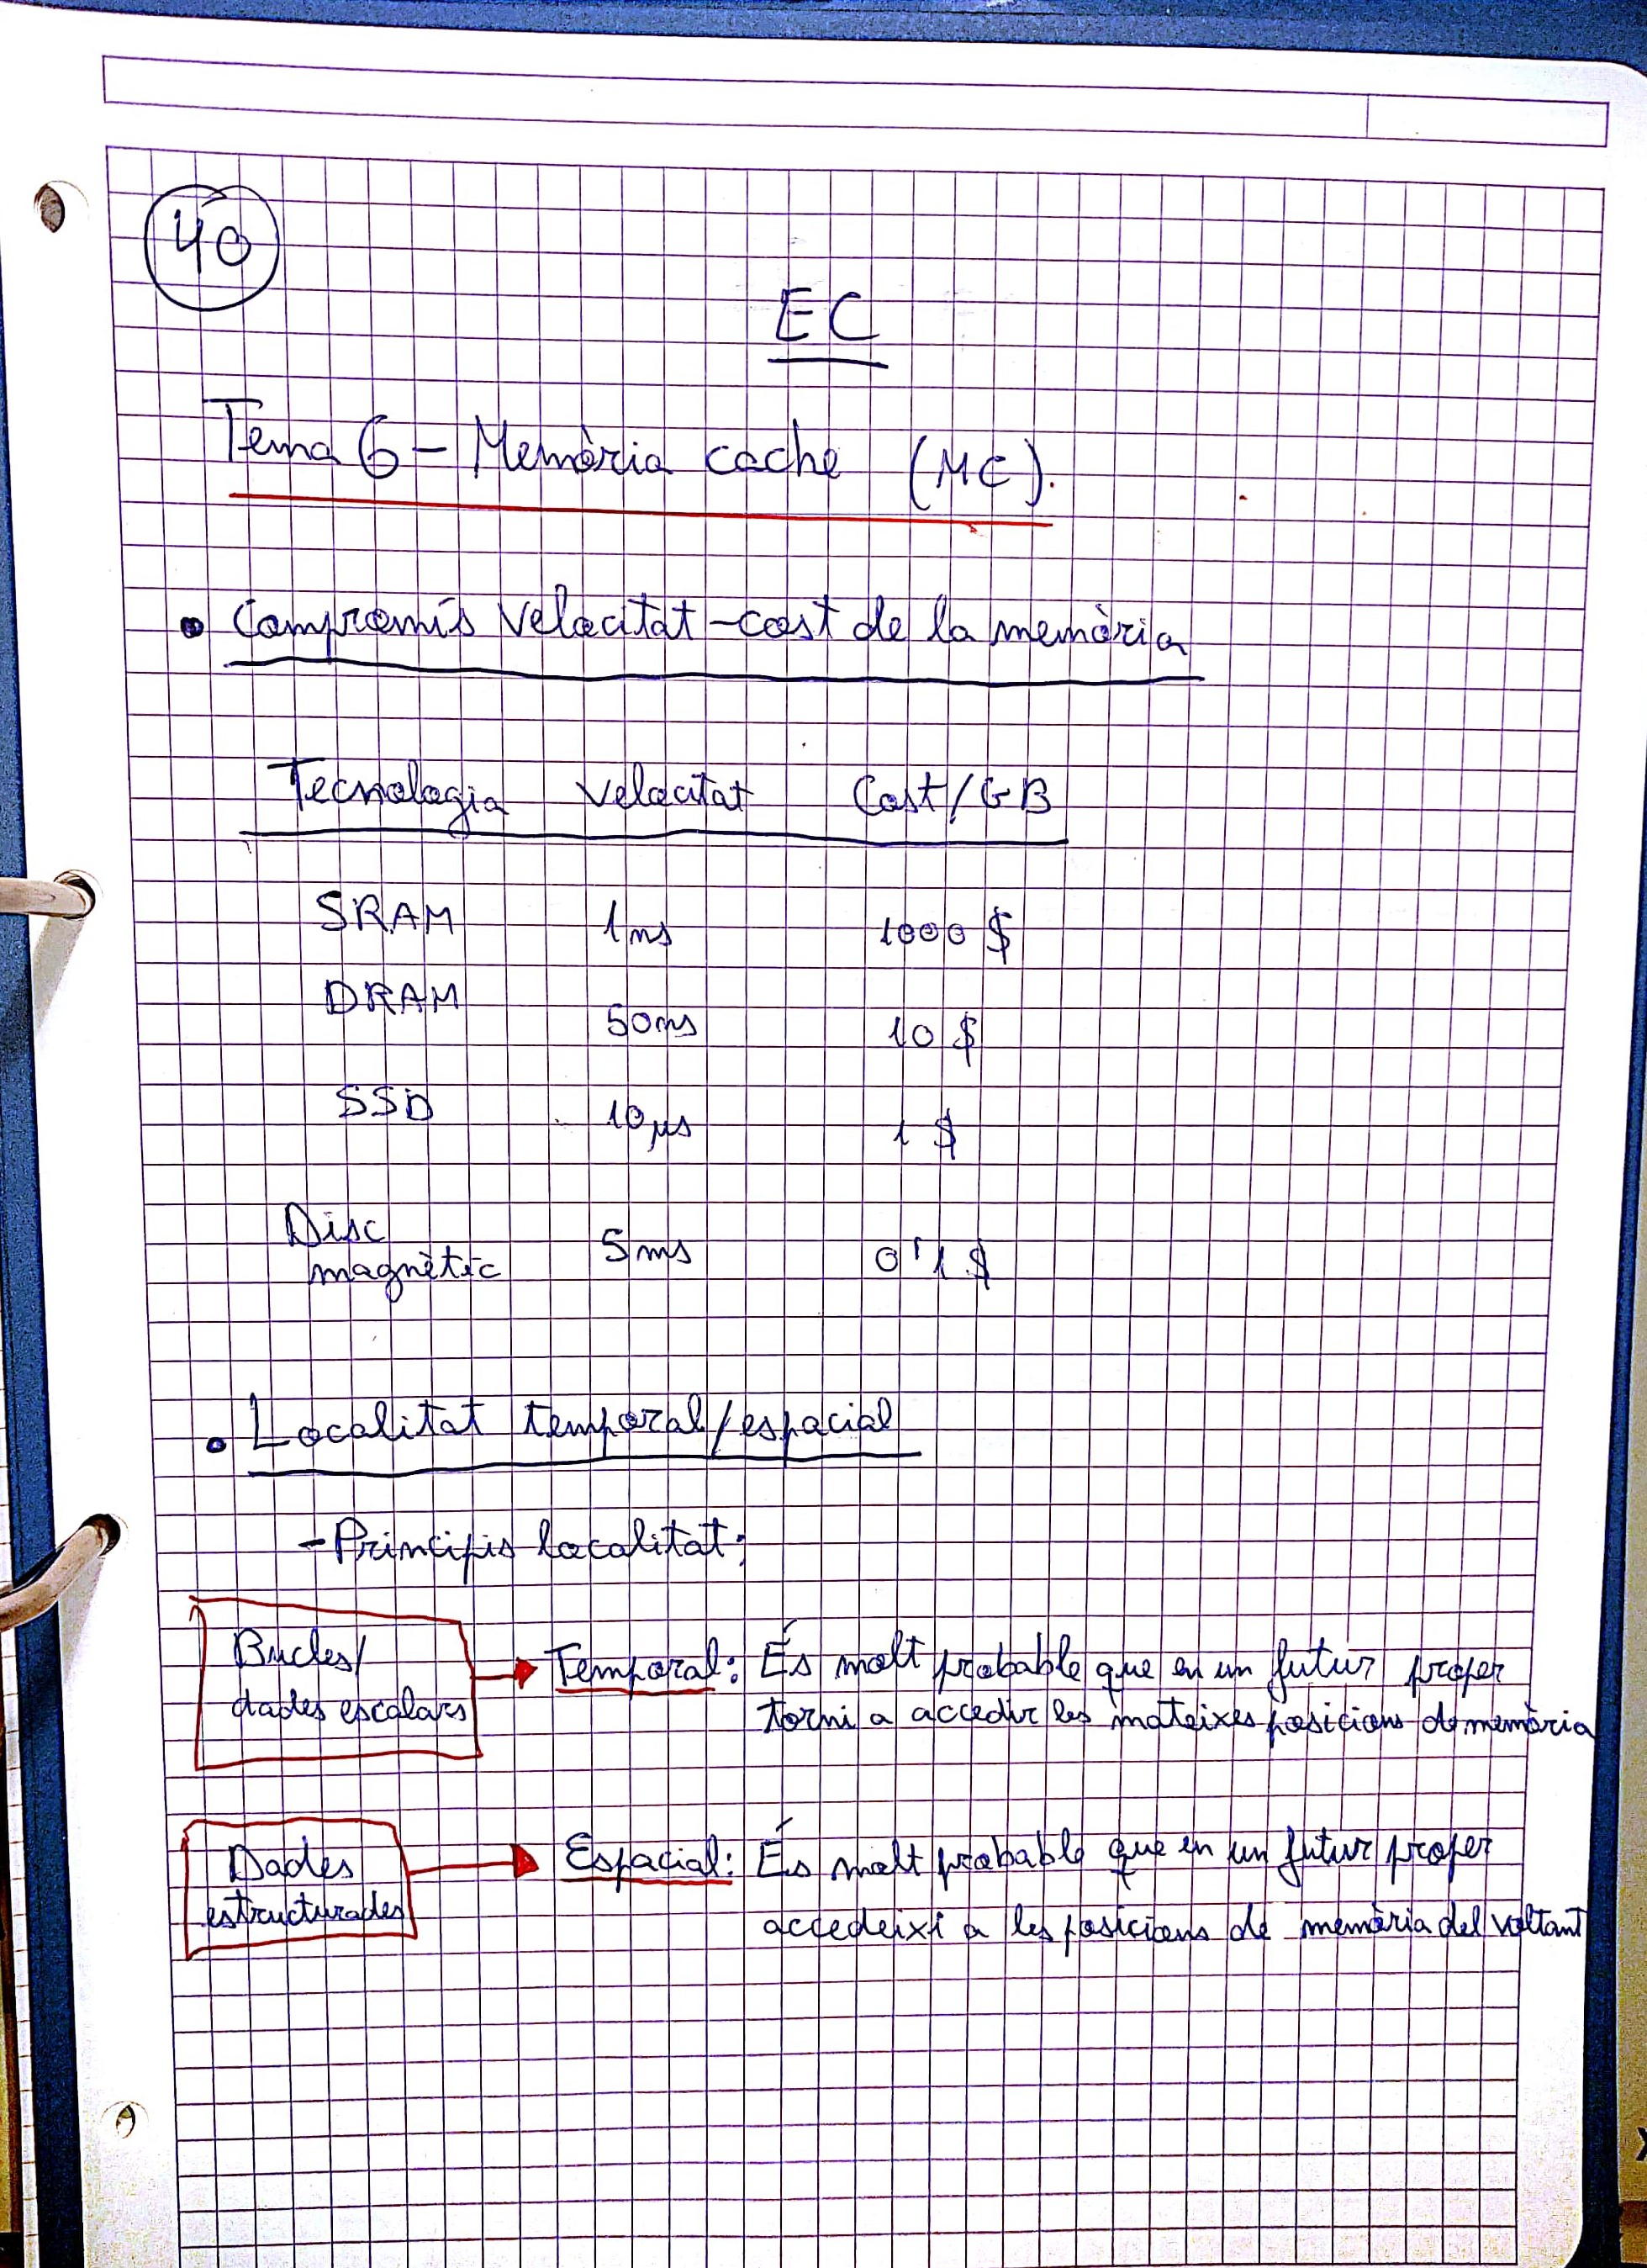 40
EC
Tema 6 - Memòria cache (MC).
• Compromís velocitat-cost de la memòria
Tecnologia Velocitat Cost/GB
SRAM 1ns 1000 $
DRAM 50ns 10 $
SSD 10µs 1 $
Disc
magnètic 5ms 0'1 $
• Localitat temporal/espacial
- Principis localitat:
Bucles/
dades escalars
Temporal: És molt probable que en un futur proper
torni a accedir les mateixes posicions de memòria
Dades
estructurades
Espacial: És molt probable que en un futur proper
accedeixi a les posicions de memòria del voltant